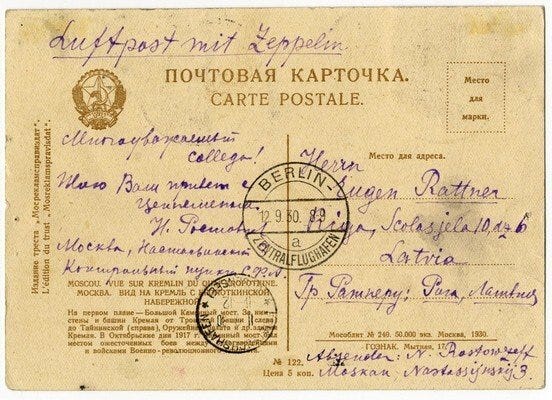 Luftpost mit Zeppelin.
ПОЧТОВАЯ КАРТОЧКА.
CARTE POSTALE.
Место
для
марки.
Издание треста „Мосрекламсправиздат".
L'édition du trust „Mosreklamspravisdat".
Многоуважаемый
collega!
Шлю Вам привет с
Цеппелином
Н. Ростовцев
Москва, Настасьинский
Контрольный пункт С.Ф.А.
MOSCOU. VUE SUR KREMLIN DU
МОСКВА. ВИД НА КРЕМЛЬ С КРОПОТКИНСКОЙ
НАБЕРЕЖНОЙ.
На первом плане — Большой Каменный мост. За ним
стены и башни Кремля от Троицкой башни (слева)
до Тайнинской (справа), Оружейная палата и др. здания
Кремля. В Октябрьские дни 1917 г. Каменный мост был
местом ожесточенных боев между
войсками Военно-революционного
Место для адреса.
Herrn
Eugen Rattner
Riga, Scolasjela 10, dz 6
Latvia
Гр. Ратнеру: Рига, Латвия
BERLIN-
12.9.30. 8-9
a
ZENTRALFLUGHAFEN
FRIEDRICHSHAFEN
Мособлит № 240. 50.000 экз. Москва, 1930.
ГОЗНАК. Мытная, 17.
№ 122.
Цена 5 коп.
Absender: N. Rostowzeff
Moskau, Nastassjinskij 3.